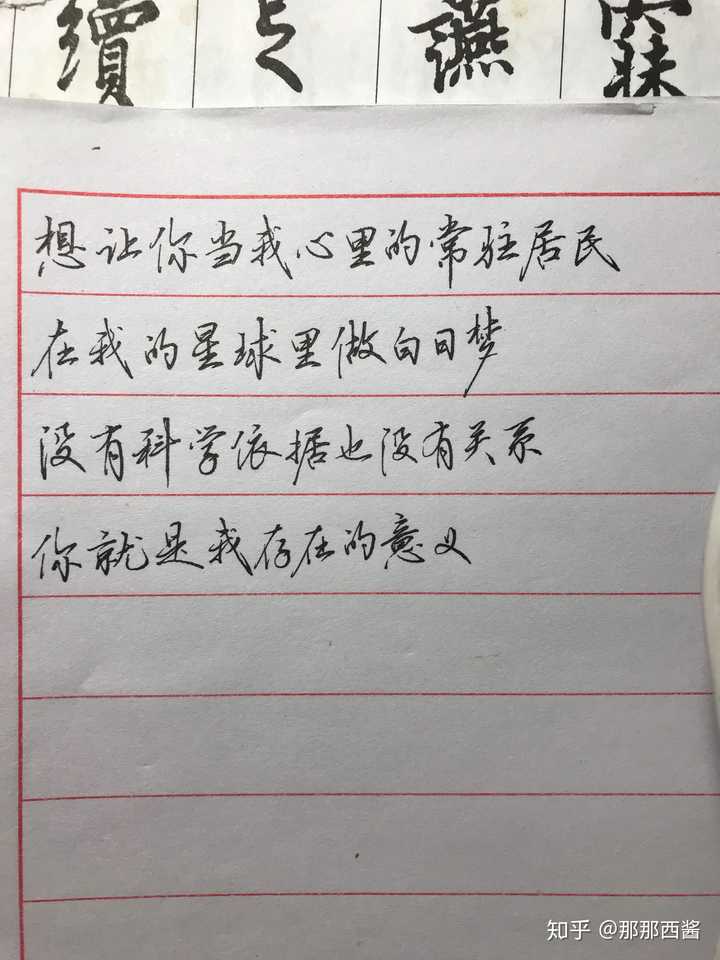 續
讌
想让你当我心里的常驻居民
在我的星球里做白日梦
没有科学依据也没有关系
你就是我存在的意义
知乎 @那那西酱